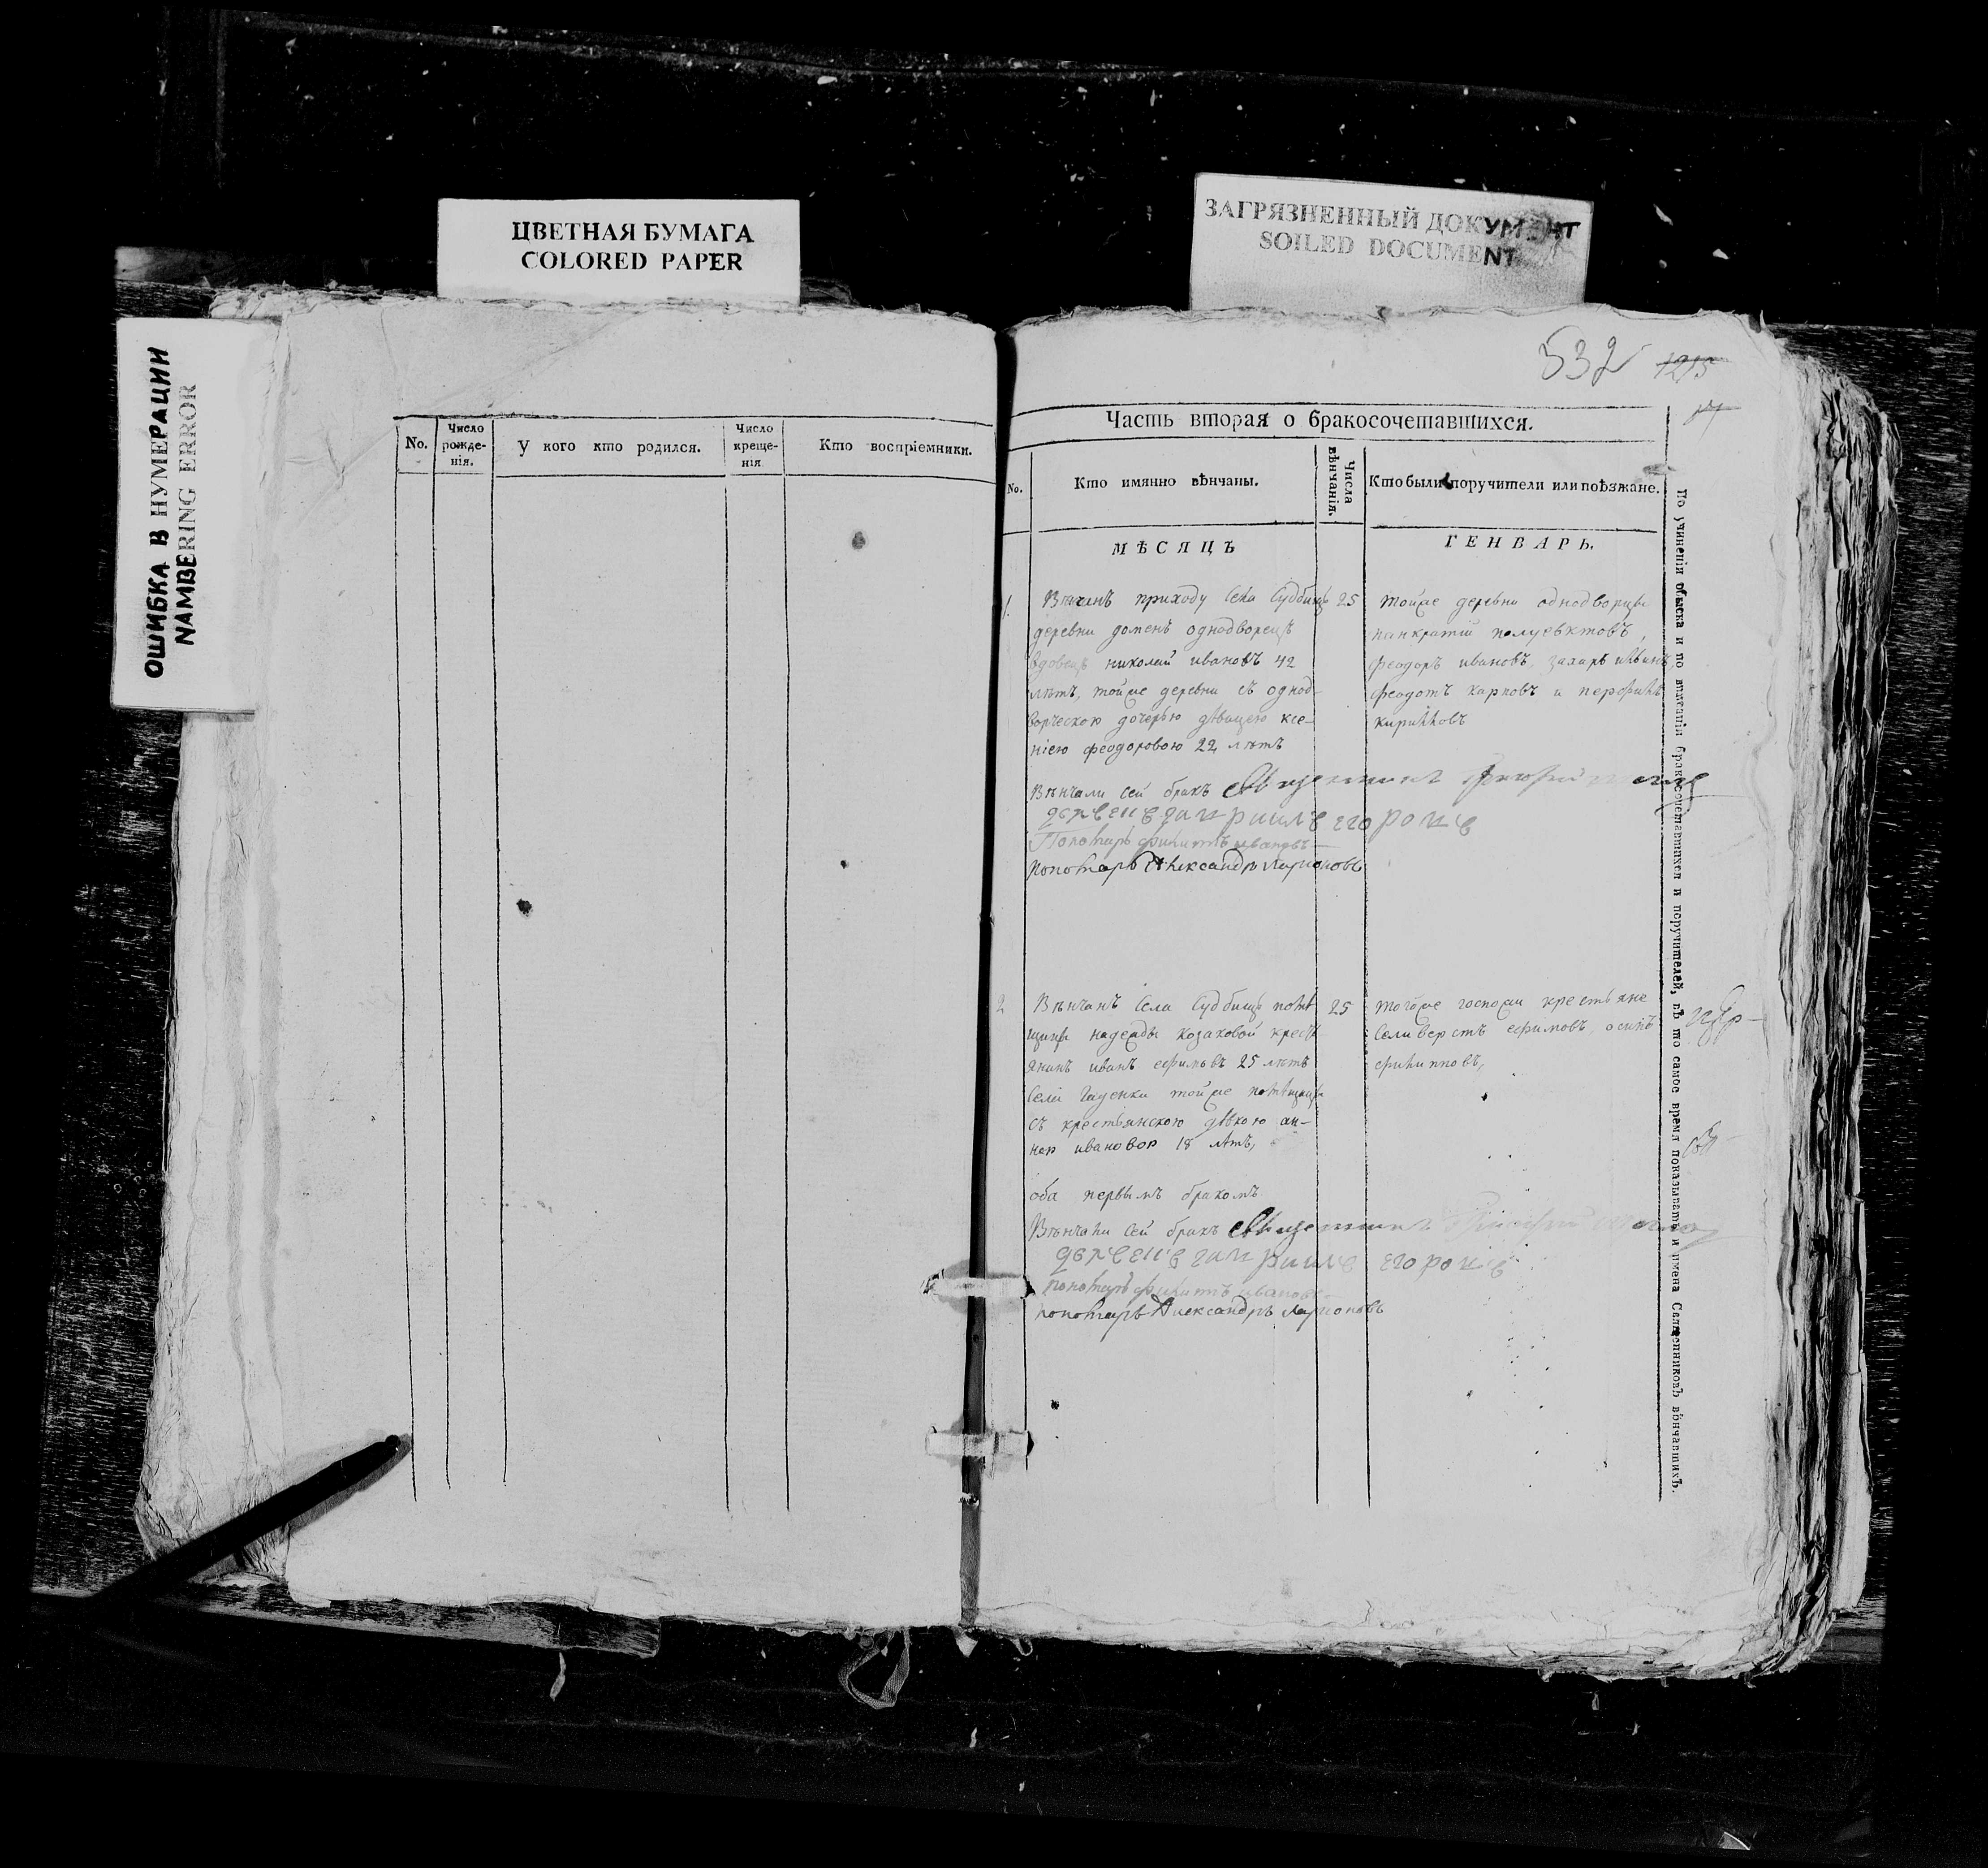 ЦВЕТНАЯ БУМАГА
COLORED PAPER
ЗАГРЯЗНЕННЫЙ ДОКУМЕНТ
SOILED DOCUMENT
ОШИБКА В НУМЕРАЦИИ
NAMBERING ERROR
No.
Число рожде-нія.
У кого кто родился.
Число креще-нія
Кто воспріемники.
532 1215
Часть вторая о бракосочетавшихся.
No.
Кто имянно вѣнчаны.
Числа вѣнчанія.
Кто были поручители или поѣзжане.
МѢСЯЦЪ
ГЕНВАРЬ.
1.
Вѣнчанъ приходу села Судбищъ
деревни доменъ однодворецъ
вдовецъ николай ивановъ 42
лѣтъ, тойже деревни съ однод-
ворческою дочерью дѣвицею ксе-
ніею феодоровою 22 лѣтъ
25
тойже деревни однодворцы
панкратій полуевктовъ,
феодоръ ивановъ, захаръ
феодотъ карповъ и перфилъ
кириловъ
Вѣнчали сей бракъ Священникъ
Гавриилъ Егоровъ
Пономарь филипъ ивановъ
пономарь Александръ Ларионовъ
2
Вѣнчанъ села Судбищъ помѣ
щицы надежды козаковой кресть
янинъ иванъ ефимовъ 25 лѣтъ
села тойже помѣщицы
съ крестьянскою дѣвкою ан-
ною ивановою 18 лѣтъ,
25
тойже госпожи крестьяне
селиверстъ ефимовъ, осипъ
филипповъ,
оба первымъ бракомъ
Вѣнчали сей бракъ Священникъ
Гавриилъ Егоровъ
пономарь филипъ ивановъ
пономарь Александръ Ларионовъ
По учиненіи обыска и по вписаніи бракосочетавшихся и поручителей, въ то самое время показывать и имена Священниковъ вѣнчавшихъ.